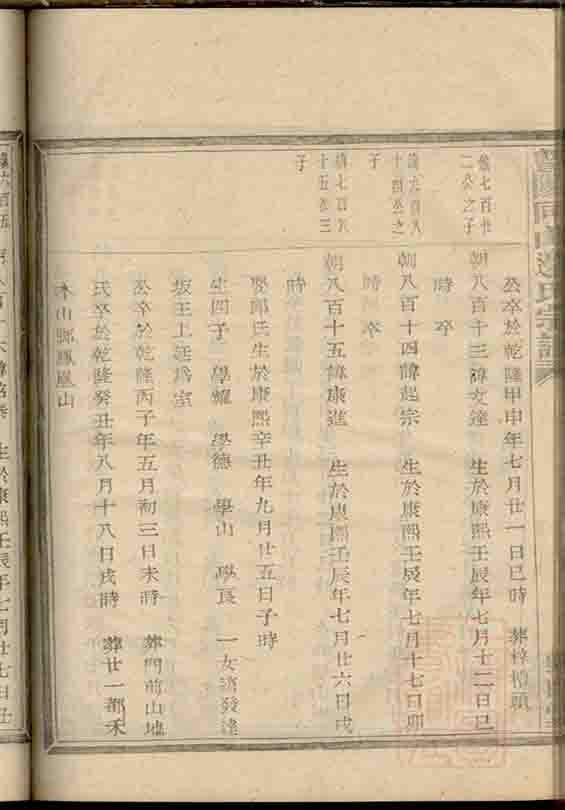 公卒於乾隆甲申年七月廿一日巳時 葬梓
儀七百廿二公之子
朝八百十三諱友達 生於康熙壬辰年七月十二日巳時 卒
儀六百八十四公之子
朝八百十四諱起宗 生於康熙壬辰年七月十七日卯時 卒
儀七百八十五公三子
朝八百十五諱康進 生於康熙壬辰年七月廿六日戌時
娶郎氏生於康熙辛丑年九月廿五日子時
生四子 學耀 學德 學山 學良 一女適發達
坂王上廷爲室
公卒於乾隆丙子年五月初三日未時 葬門前山地
氏卒於乾隆癸丑年八月十八日戌時 葬廿一都禾
木山鄉鳳凰山
生於康熙壬辰年七月廿七日丑